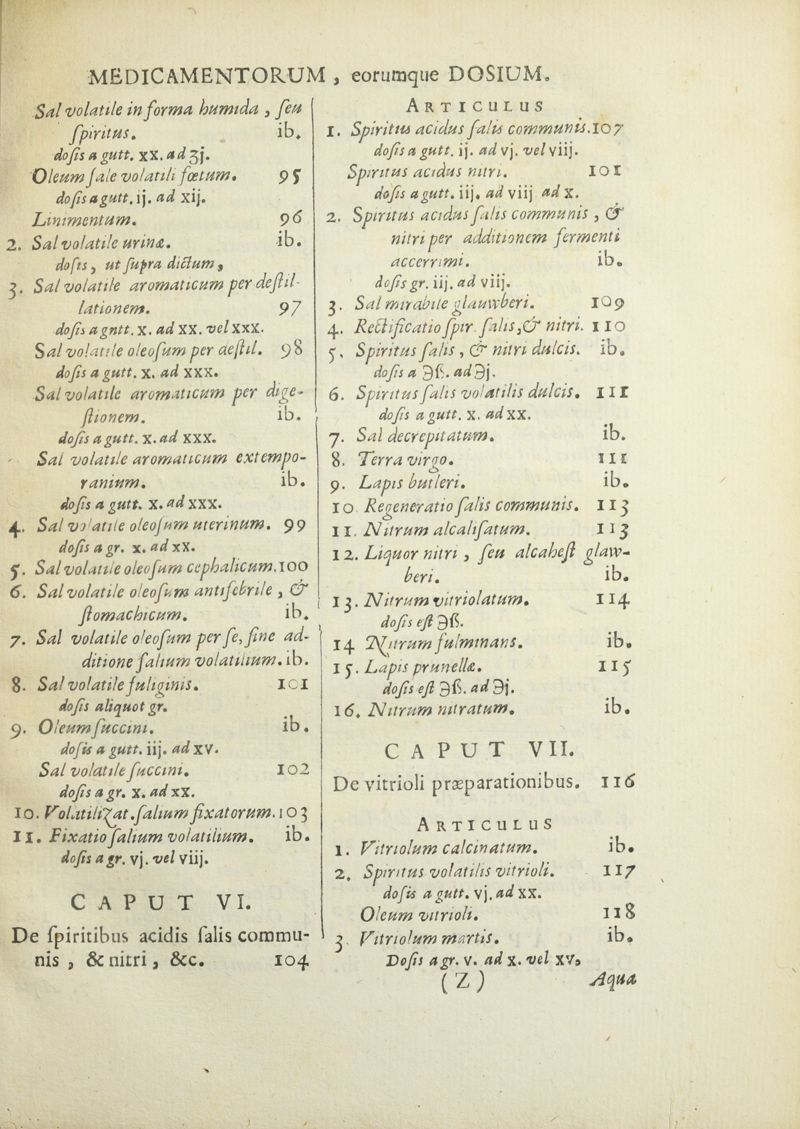 MEDICAMENTORUM, eorumque DOSIUM.
Sal volatile in forma humida, ſeu
ſpiritus. ib.
doſis a gutt. xx. ad ʒj.
Oleum ſale volatili fœtum. 95
doſis a gutt. ij. ad xij.
Linimentum. 96
2. Sal volatile urinæ. ib.
doſis, ut ſupra dictum,
3. Sal volatile aromaticum per deſtil-
lationem. 97
doſis a gntt. x. ad xx. vel xxx.
Sal volatile oleoſum per deſtil. 98
doſis a gutt. x. ad xxx.
Sal volatile aromaticum per dige-
ſtionem. ib.
doſis a gutt. x. ad xxx.
Sal volatile aromaticum extempo-
ranium. ib.
doſis a gutt. x. ad xxx.
4. Sal volatile oleoſum uterinum. 99
doſis a gr. x. ad xx.
5. Sal volatile oleoſum cephalicum. 100
6. Sal volatile oleoſum antifebrile, &
ſtomachicum. ib.
7. Sal volatile oleoſum per ſe, ſine ad-
ditione ſalium volatilium. ib.
8. Sal volatile fuliginis. 101
doſis aliquot gr.
9. Oleum ſuccini. ib.
doſis a gutt. iij. ad xv.
Sal volatile ſuccini. 102
doſis a gr. x. ad xx.
10. Volatilizat. ſalium fixatorum. 103
11. Fixatio ſalium volatilium. ib.
doſis a gr. vj. vel viij.
CAPUT VI.
De ſpiritibus acidis ſalis commu-
nis, & nitri, &c. 104
ARTICULUS
1. Spiritus acidus ſalis communis. 107
doſis a gutt. ij. ad vj. vel viij.
Spiritus acidus nitri. 101
doſis a gutt. iij. ad viij ad x.
2. Spiritus acidus ſalis communis, &
nitri per additionem fermenti
accerrimi. ib.
doſis gr. iij. ad viij.
3. Sal mirabile glauwberi. 109
4. Rectificatio ſpir. ſalis, & nitri. 110
5. Spiritus ſalis, & nitri dulcis. ib.
doſis a ℈ß. ad ℈j.
6. Spiritus ſalis volatilis dulcis. 111
doſis a gutt. x. ad xx.
7. Sal decrepitatum. ib.
8. Terra virgo. 111
9. Lapis butleri. ib.
10 Regeneratio ſalis communis. 113
11. Nitrum alcaliſatum. 113
12. Liquor nitri, ſeu alcaheſt glaw-
beri. ib.
13. Nitrum vitriolatum. 114
doſis eſt ℈ß.
14 Nitrum fulminans. ib.
15. Lapis prunellæ. 115
doſis eſt ℈ß. ad ℈j.
16. Nitrum nitratum. ib.
CAPUT VII.
De vitrioli præparationibus. 116
ARTICULUS
1. Vitriolum calcinatum. ib.
2. Spiritus volatilis vitrioli. 117
doſis a gutt. vj. ad xx.
Oleum vitrioli. 118
3. Vitriolum martis. ib.
Doſis a gr. v. ad x. vel xv,
(Z) Aqua